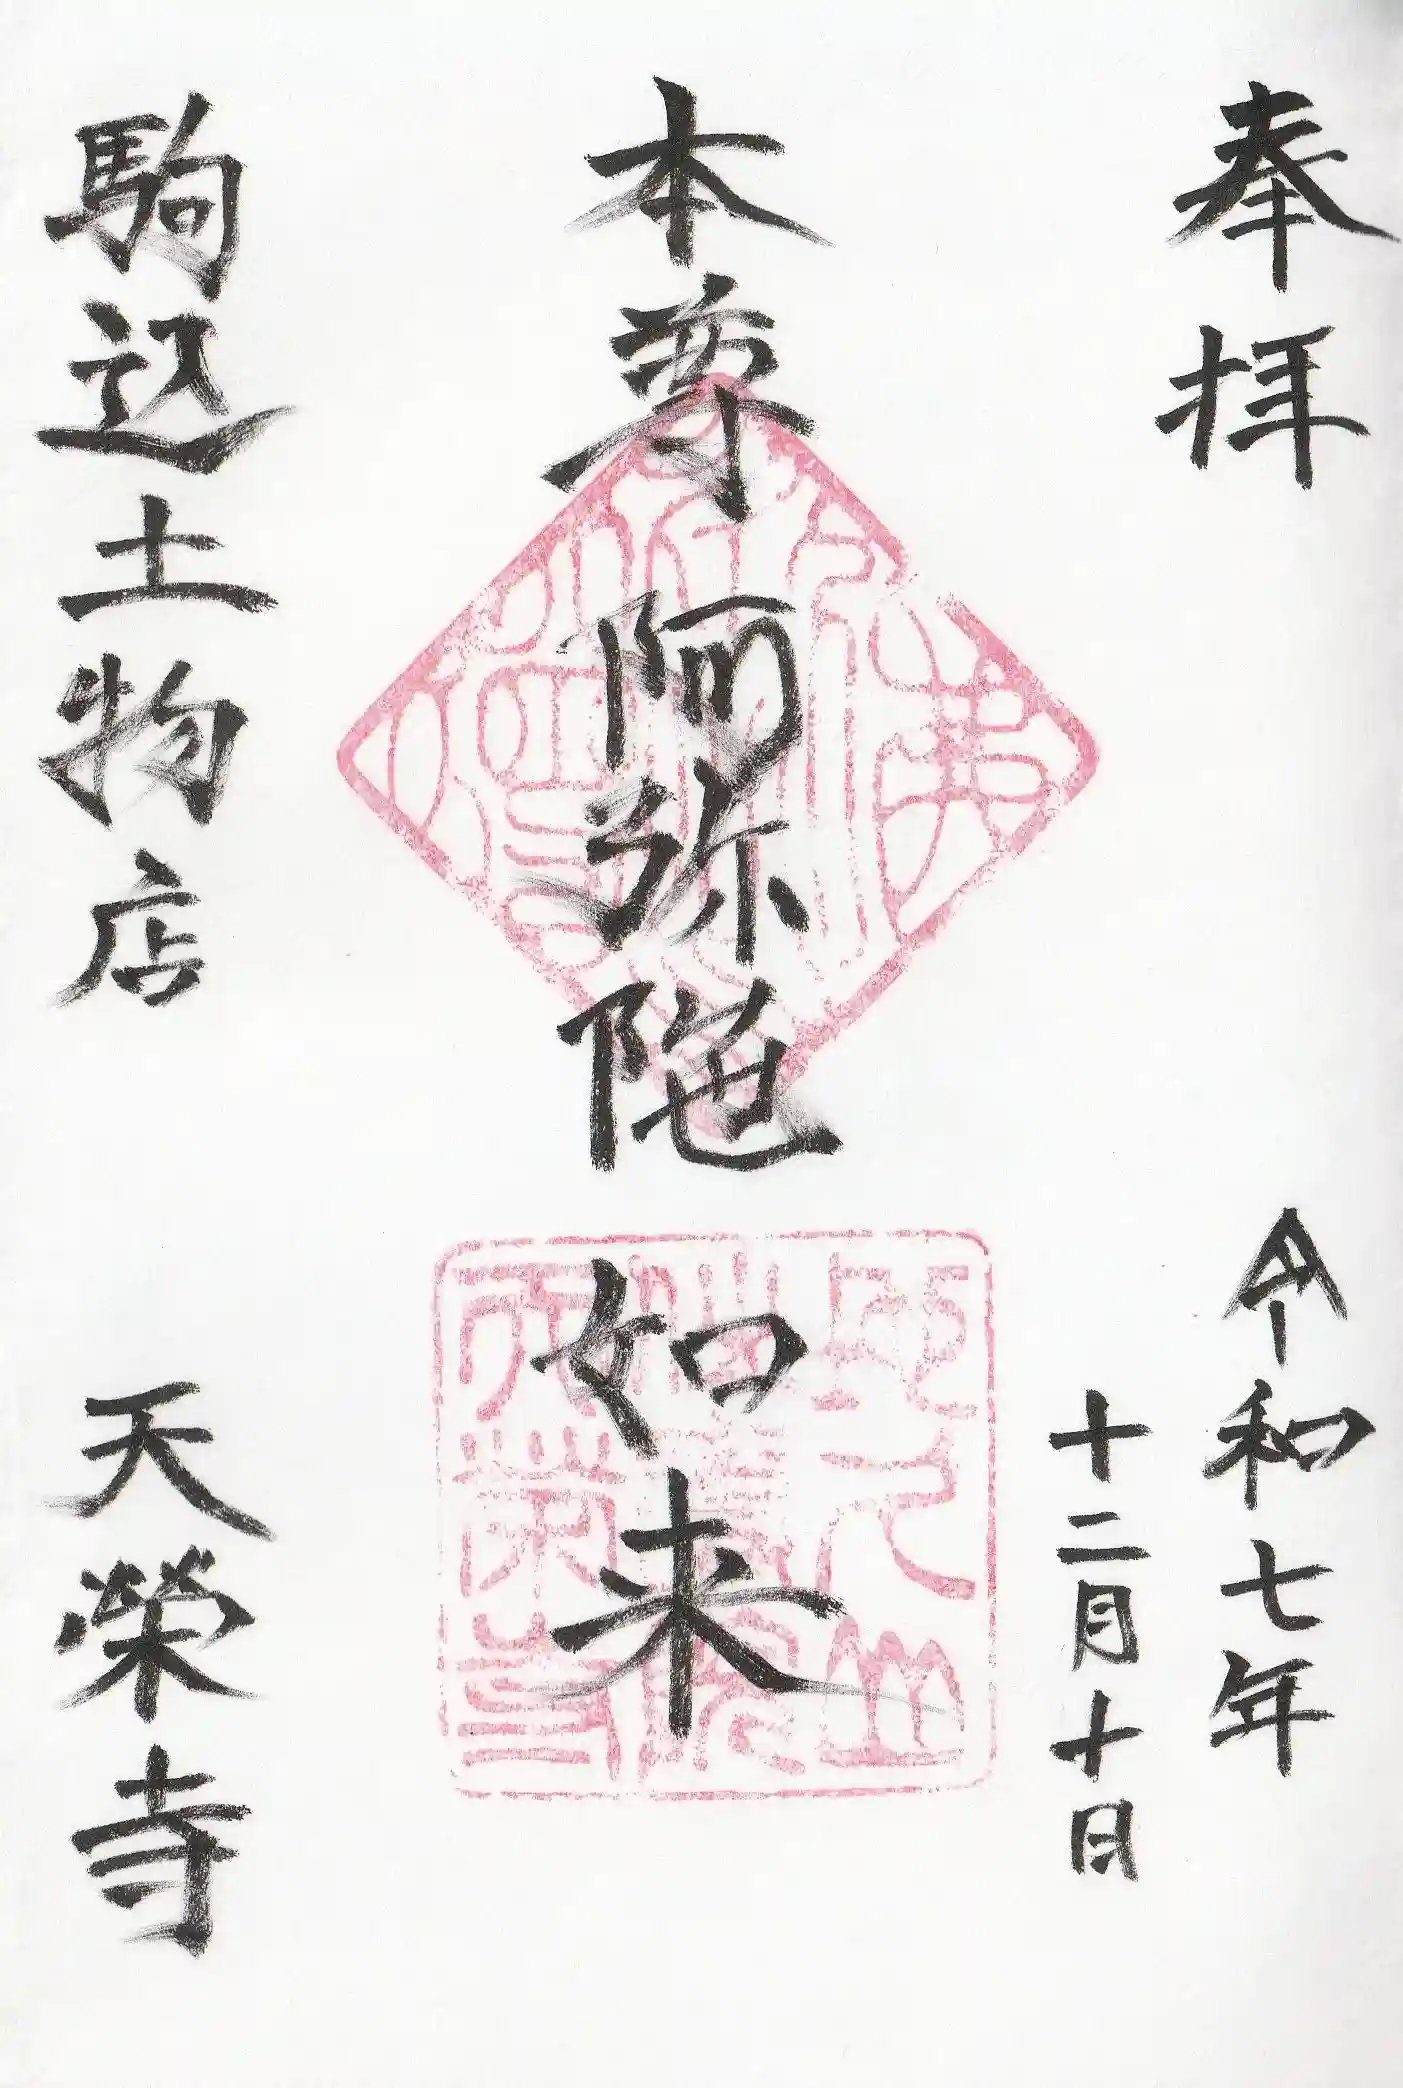 奉拝
令和七年
十二月十日
本尊 阿弥陀如来
駒込土物店
天榮寺